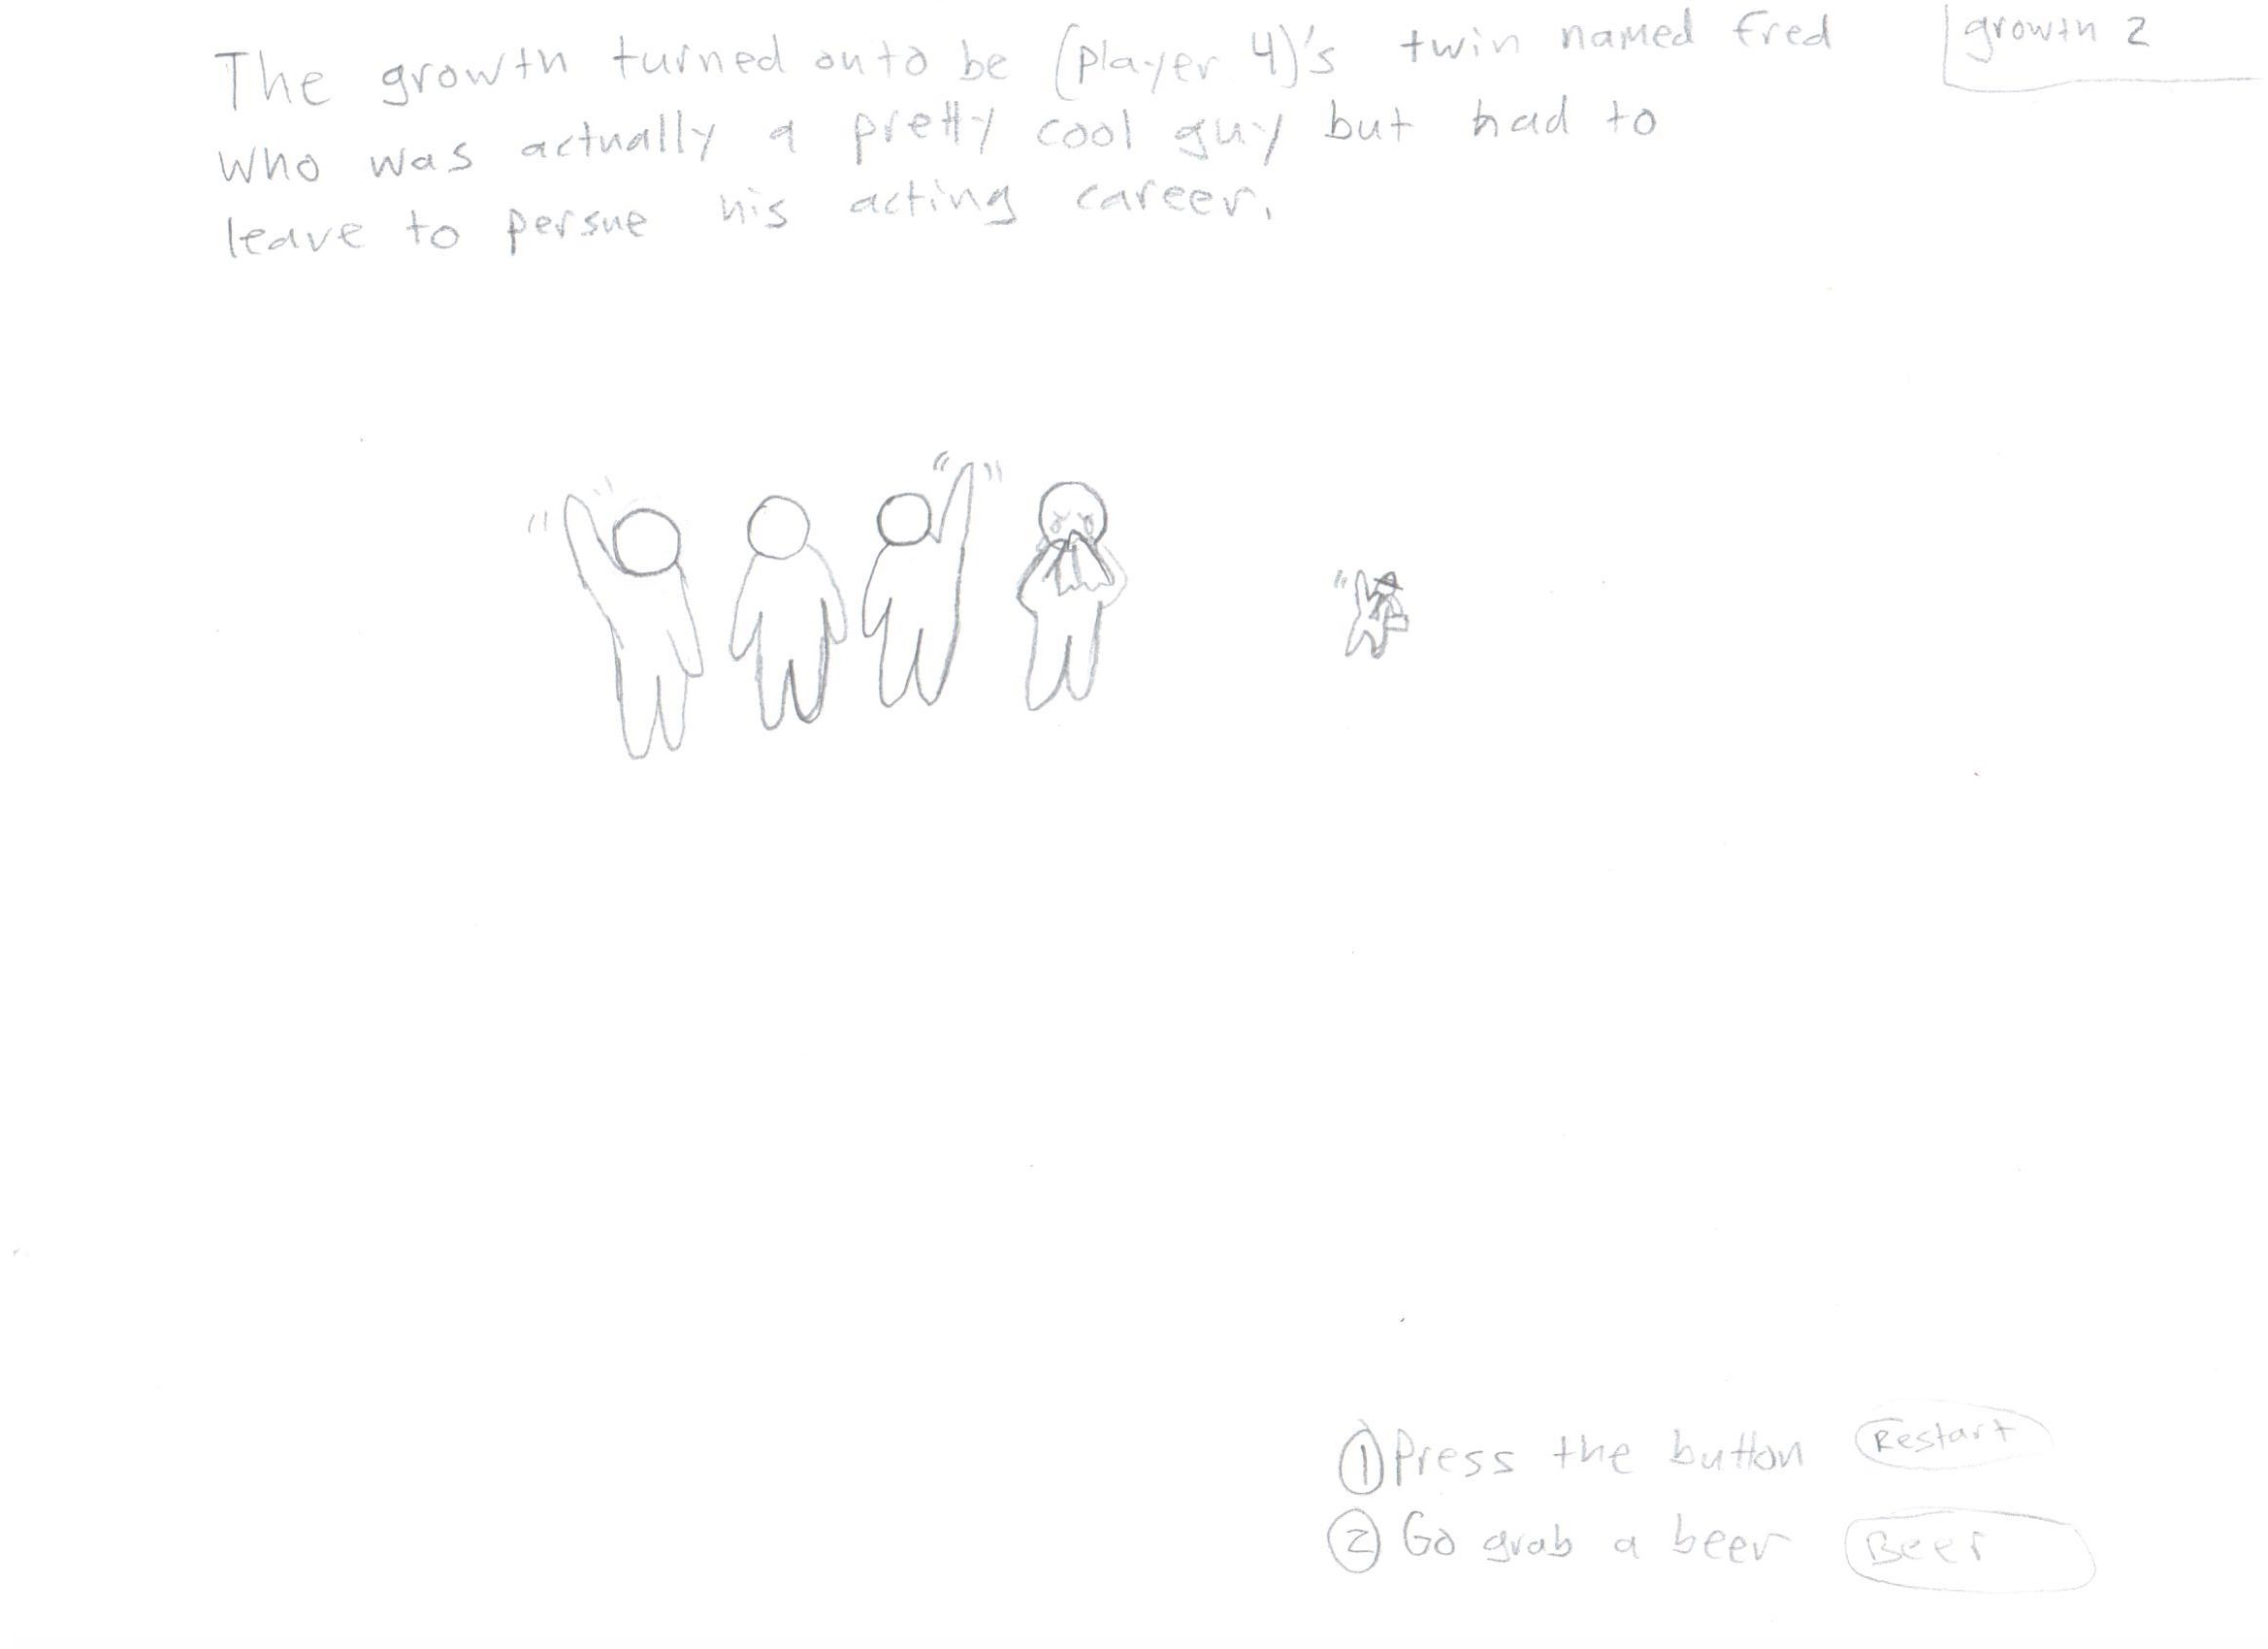 The growth turned outo be (player 4)'s twin named Fred
growth 2
who was actually a pretty cool guy but had to
leave to persue his acting career.
① Press the button Restart
② Go grab a beer Beer